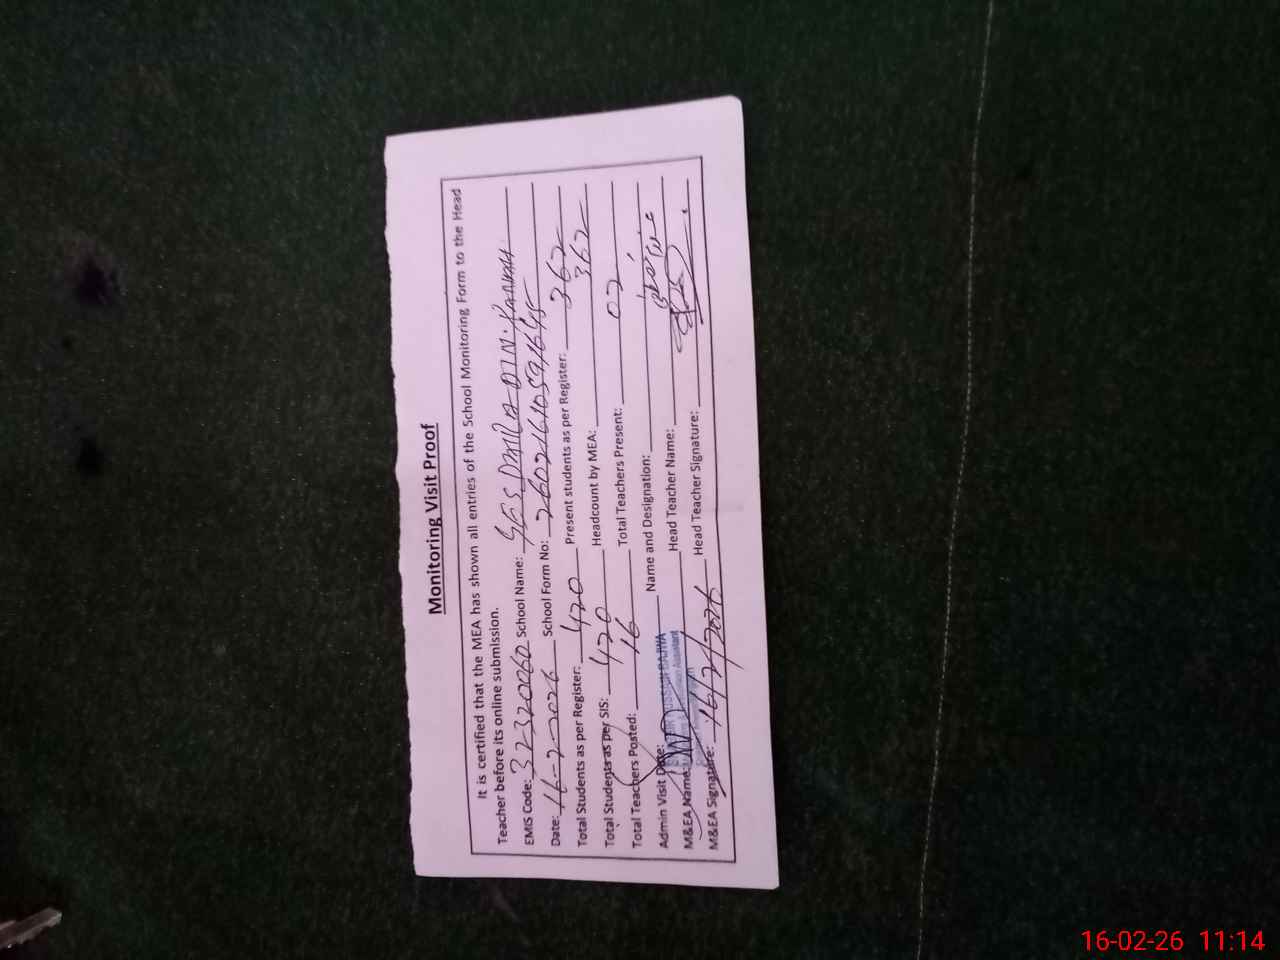 Monitoring Visit Proof
It is certified that the MEA has shown all entries of the School Monitoring Form to the Head
Teacher before its online submission.
EMIS Code: 32320060 School Name: GES DARA DIN
Date: 16-2-2026 School Form No:
Total Students as per Register: 420 Present students as per Register: 362
Total Students as per SIS: 420 Headcount by MEA: 362
Total Teachers Posted: 16 Total Teachers Present: 02
Admin Visit Date: Name and Designation:
M&EA Name: Head Teacher Name:
M&EA Signature: 16/2/2026 Head Teacher Signature:
16-02-26 11:14